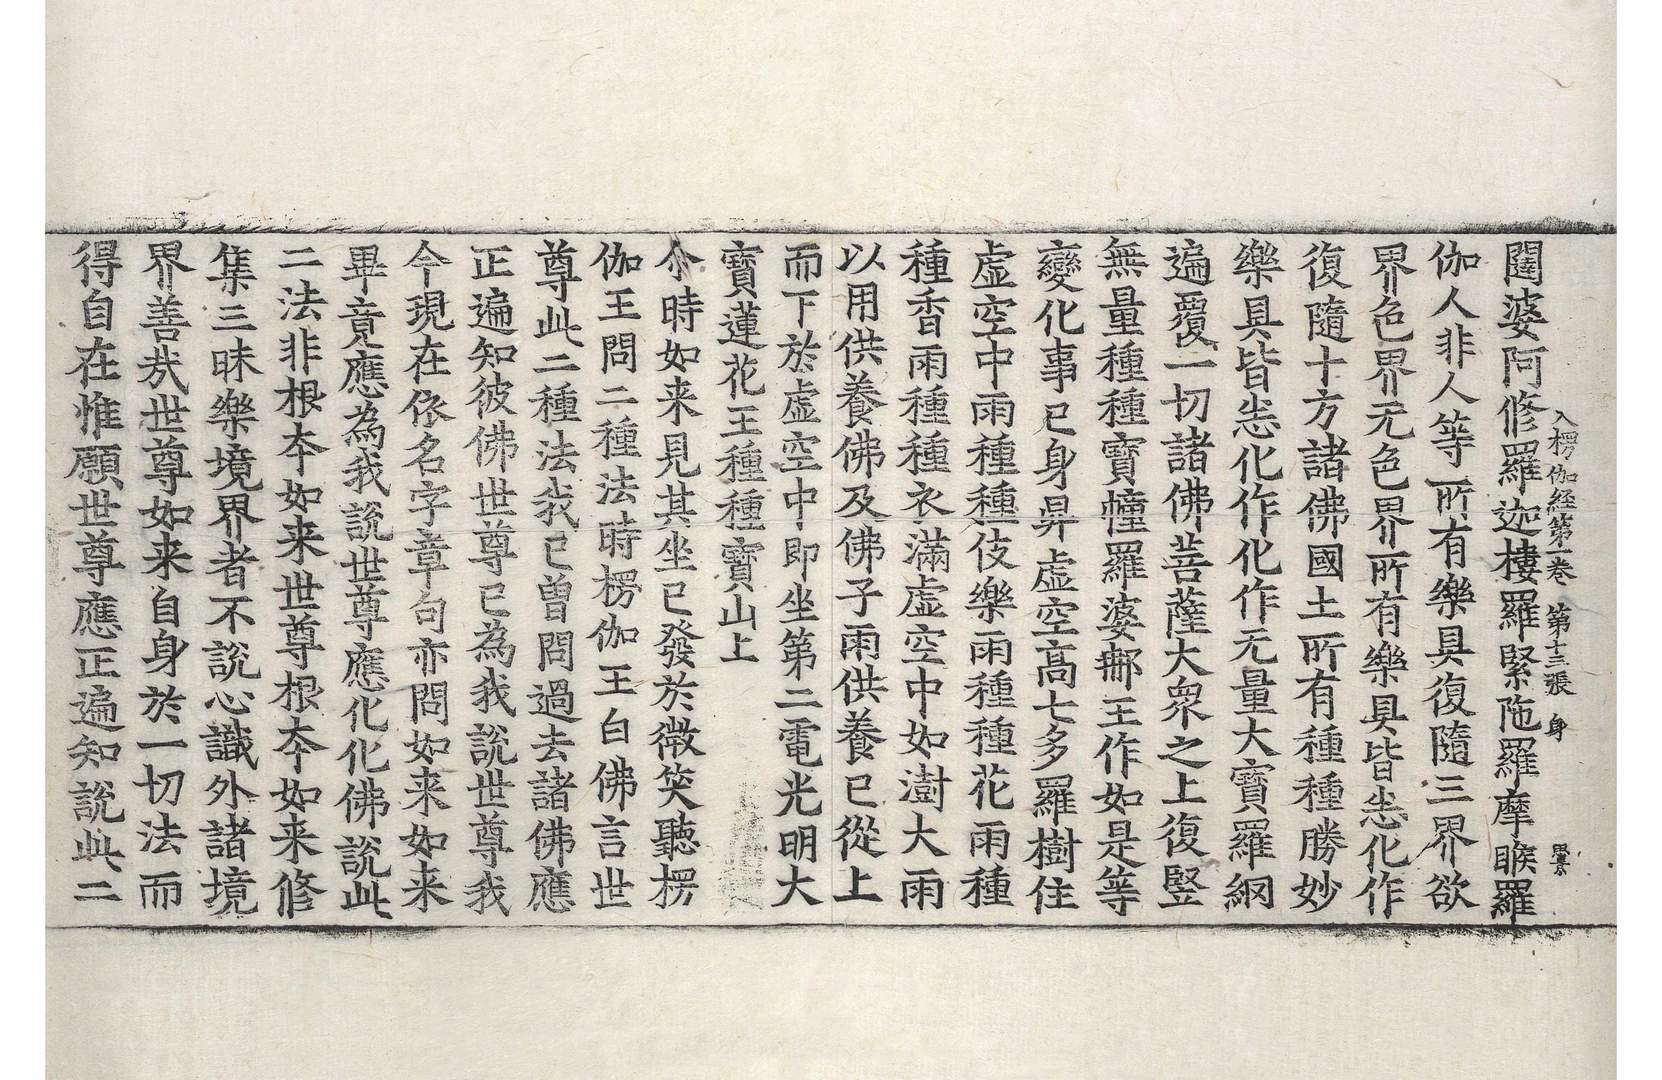 闥婆阿修羅迦樓羅緊陁羅摩睺羅
入楞伽経第一巻 第十三張 身
伽人非人等所有樂具復隨三界欲
界色界无色界所有樂具皆㤙化作
復隨十方諸佛國土所有種種勝妙
樂具皆㤙化作化作无量大寶羅網
遍覆一切諸佛菩薩大衆之上復竪
無量種種寶幢羅婆䣯王作如是等
變化事已身昇虛空髙七多羅樹住
虛空中雨種種伎樂雨種種花雨種
種香雨種種衣滿虛空中如澍大雨
以用供養佛及佛子雨供養已從上
而下於虛空中即坐第二電光明大
寶蓮花王種種寶山上
尒時如来見其坐已發於微笑聽楞
伽王問二種法時楞伽王白佛言世
尊此二種法我已曾問過去諸佛應
正遍知彼佛世尊已為我說世尊我
今現在依名字章句亦問如来如来
畢竟應為我說世尊應化化佛說此
二法非根夲如来世尊根夲如来修
集三昧樂境界者不說心識外諸境
界善㢤世尊如来自身於一切法而
得自在惟願世尊應正遍知說此二